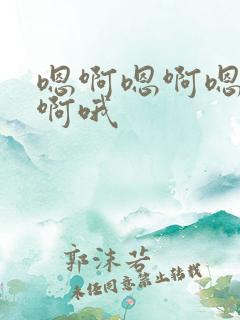 嗯啊嗯啊嗯
啊哦
郭沫若
未经同意禁止转载